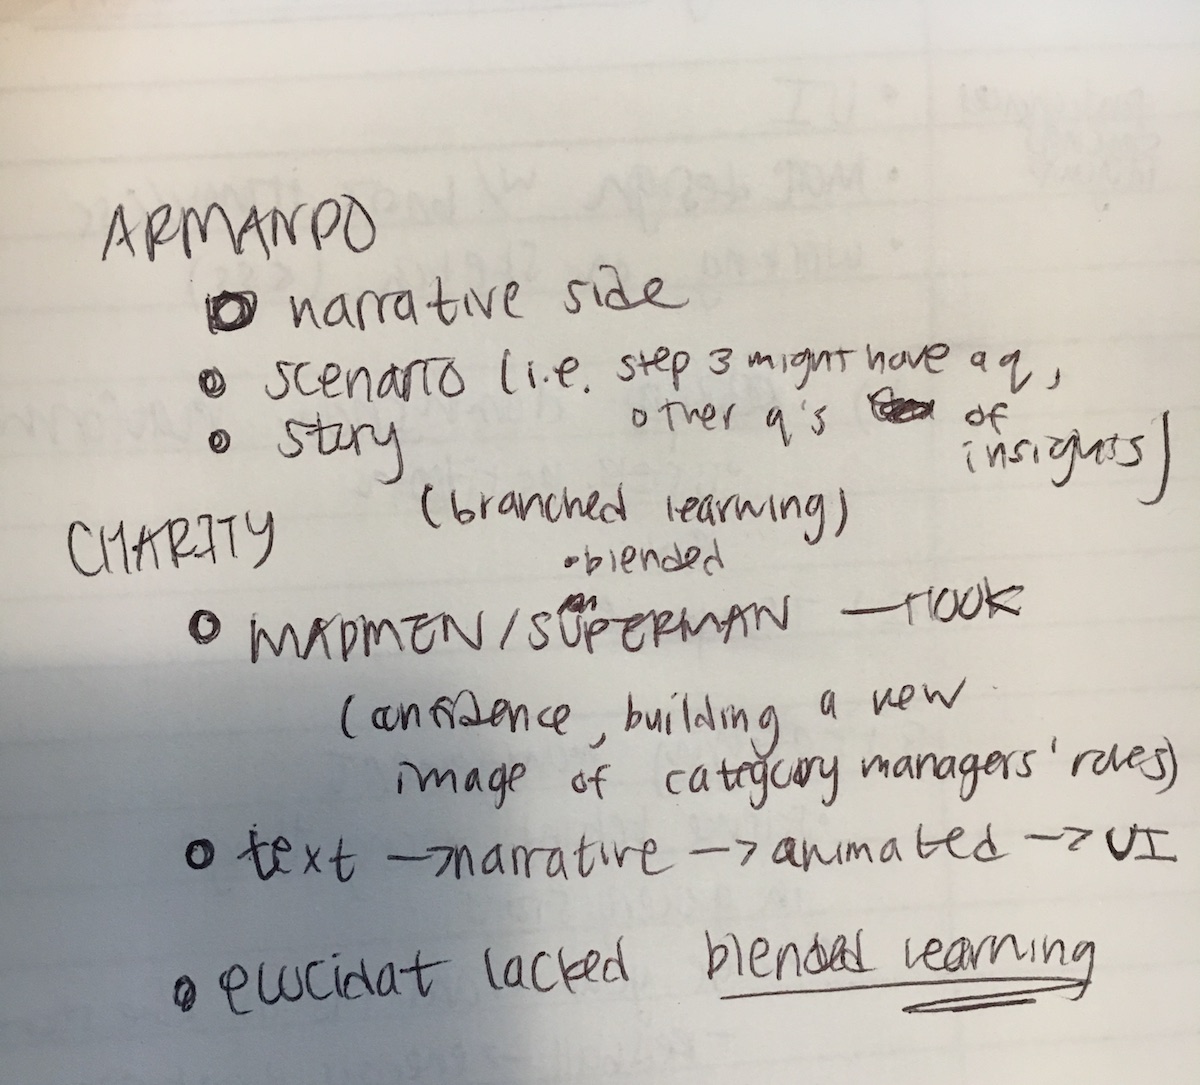 ARMANDO
narrative side
scenario (i.e. step 3 might have a q,
other q's of
insights)
story
(branched learning)
CHARITY
• blended
MADMEN/SUPERMAN — HOOK
(confidence, building a new
image of category managers' roles)
text → narrative → animated → UI
• elucidat lacked blended learning
• UI